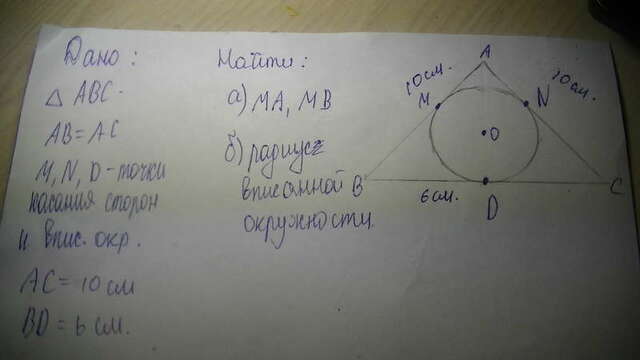 Дано:
△ ABC.
AB = AC
M, N, D - точки
касания сторон
и впис. окр.
AC = 10 см
BD = 6 см.
Найти:
а) MA, MB
б) радиус
вписанной
окружности.
A
10 см.
10 см.
M
N
O
B
C
6 см.
D